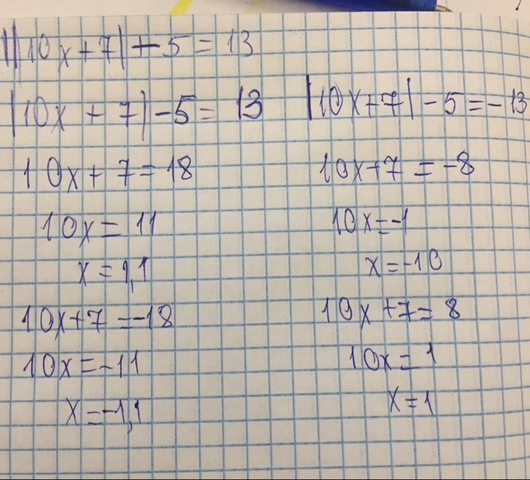 ||10x+7|-5=13
|10x+7|-5=13
10x+7=18
10x=11
x=1,1
10x+7=-18
10x=-11
x=-1,1
|10x+7|-5=-13
10x+7=-8
10x=-1
x=-10
10x+7=8
10x=1
x=1